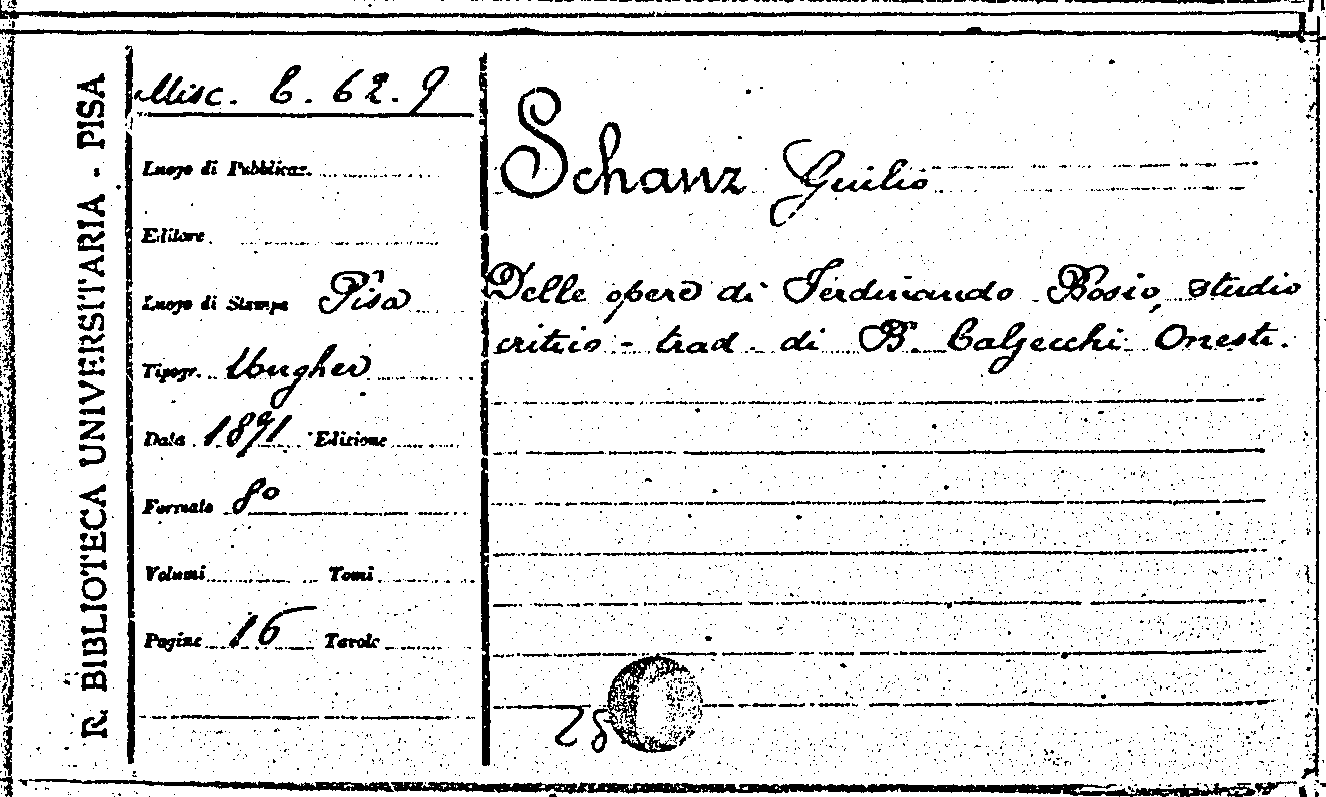 R. BIBLIOTECA UNIVERSITARIA - PISA
Misc. E. 62. 9
Luogo di Pubblicaz.
Editore
Luogo di Stampa Pisa
Tipogr. Ungher
Data 1891 Edizione
Formato 8º
Volumi Tomi
Pagine 16 Tavole
Schanz Giulio
Delle opere di Ferdinando Bosio, studio
critico - trad. di B. Calzecchi Onesti.
28